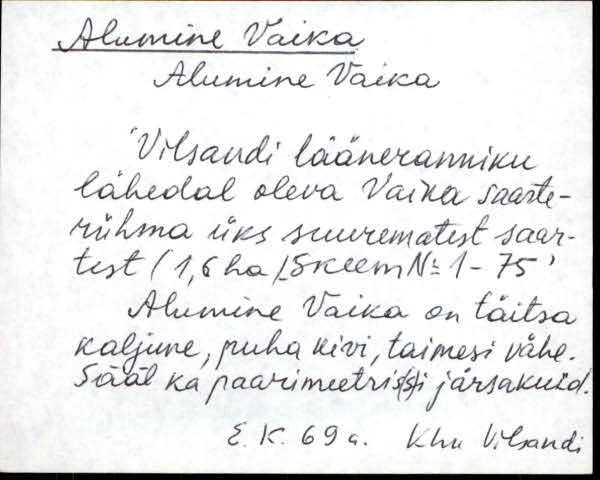 Alumine Vaika
Alumine Vaika
'Vilsandi lääneranniku
lähedal oleva Vaika saarte-
rühma üks suurematest saar-
test (1,6 ha) Skeem № 1-75'
Alumine Vaika on täitsa
kaljune, puha kivi, taimesi vähe.
Sääl ka paarimeetri(s)i järsakuid.
E. K. 69 a. Khn Vilsandi